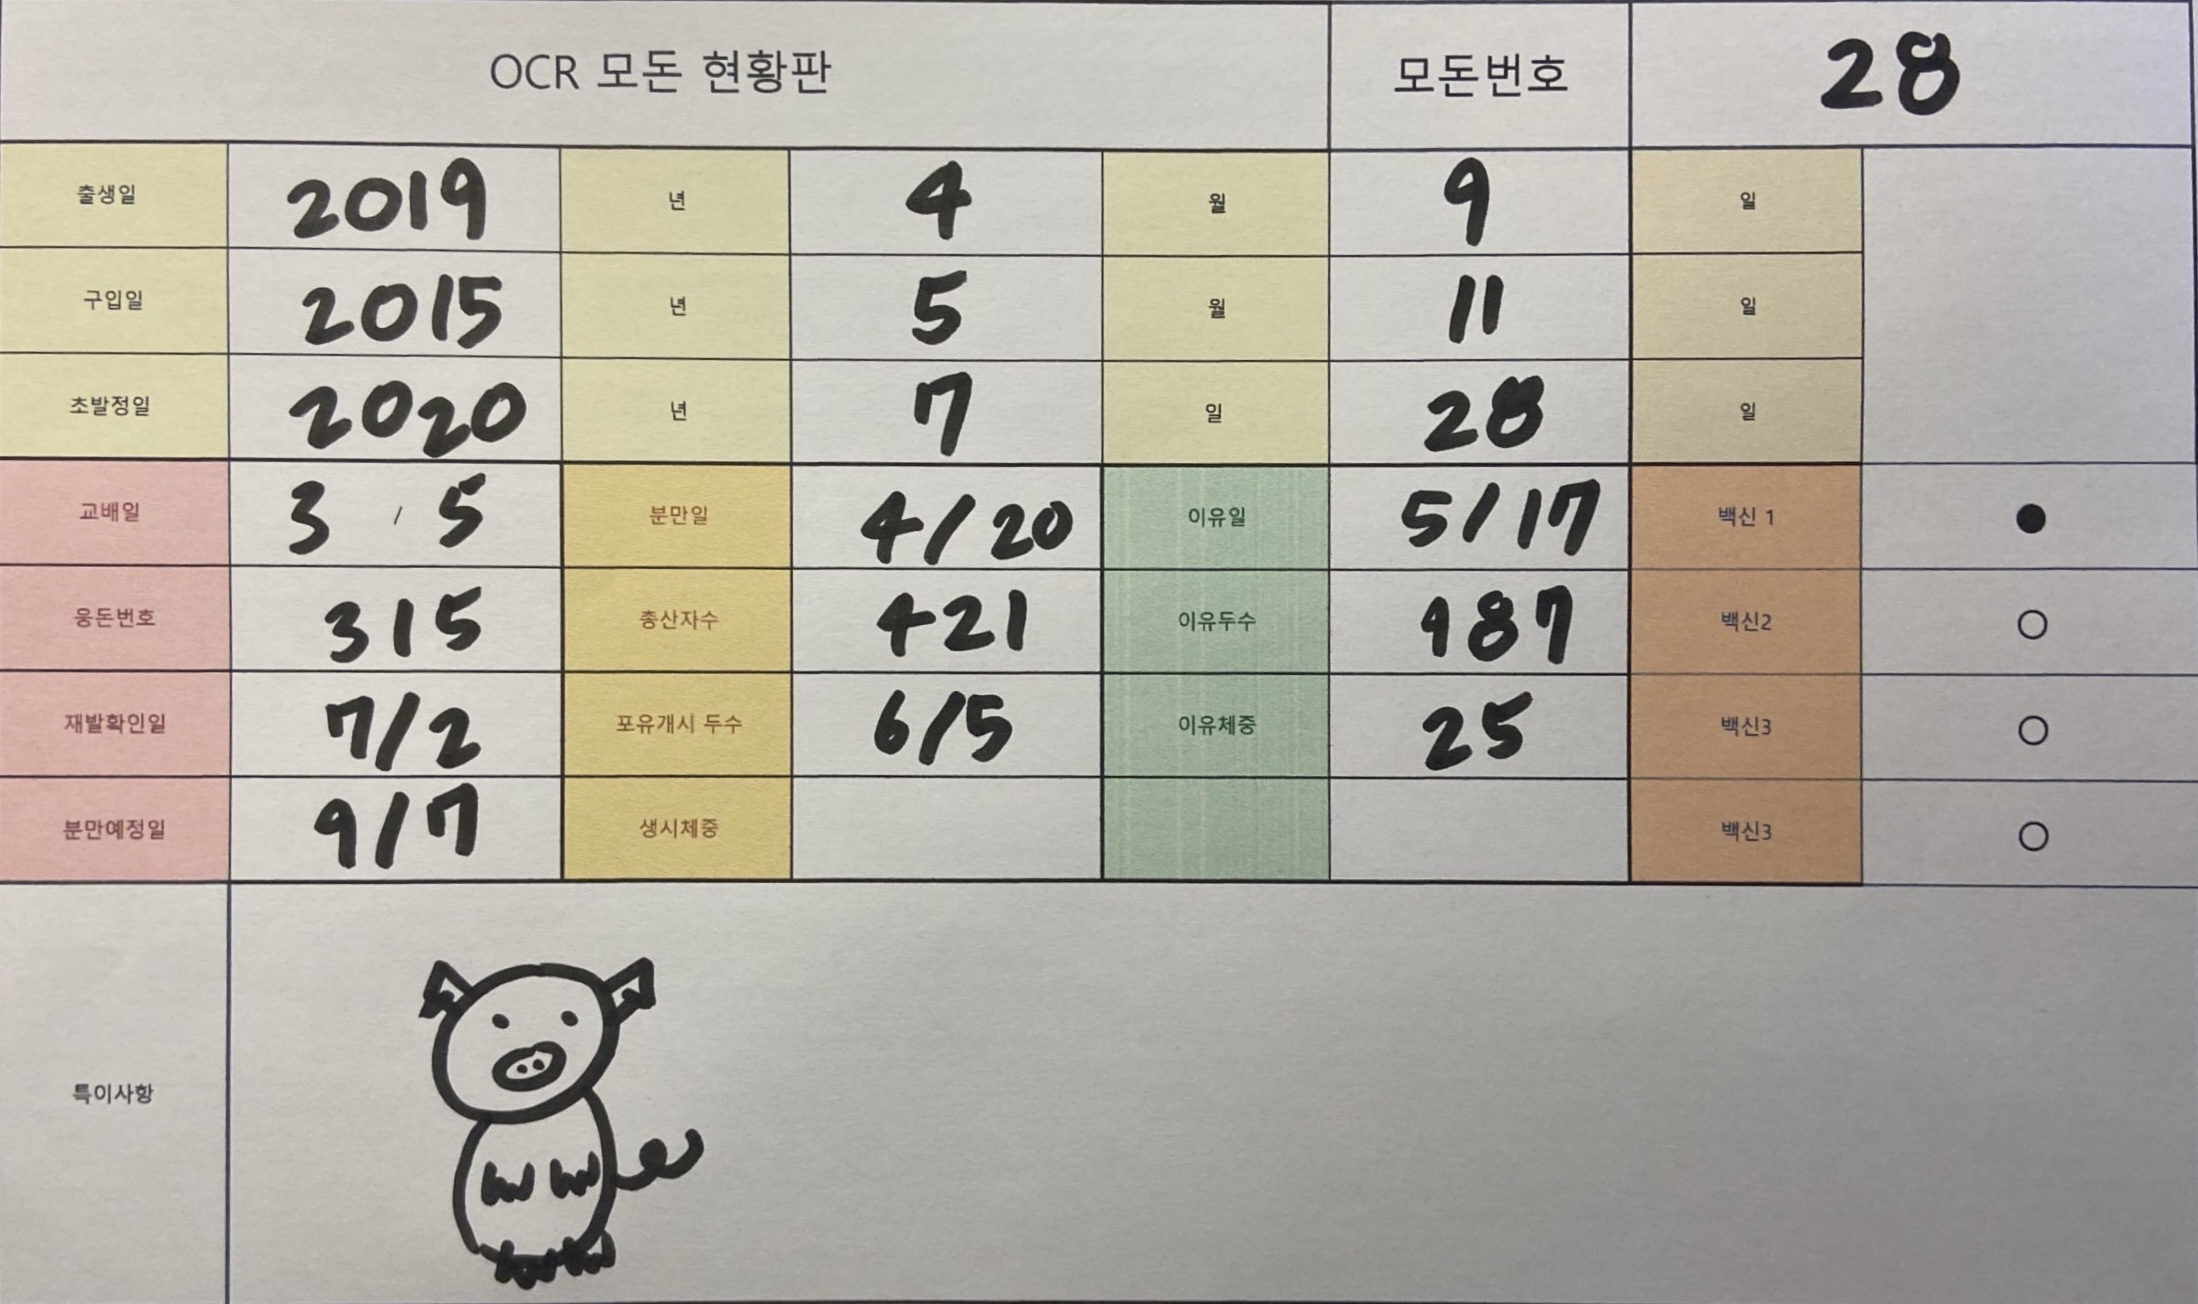 OCR 모돈 현황판 모돈번호 28
출생일 2019 년 4 월 9 일
구입일 2015 년 5 월 11 일
초발정일 2020 년 7 일 28 일
교배일 3 / 5 분만일 4/20 이유일 5/17 백신 1
웅돈번호 315 총산자수 421 이유두수 187 백신2
재발확인일 7/2 포유개시 두수 6/5 이유체중 25 백신3
분만예정일 9/7 생시체중 백신3
특이사항